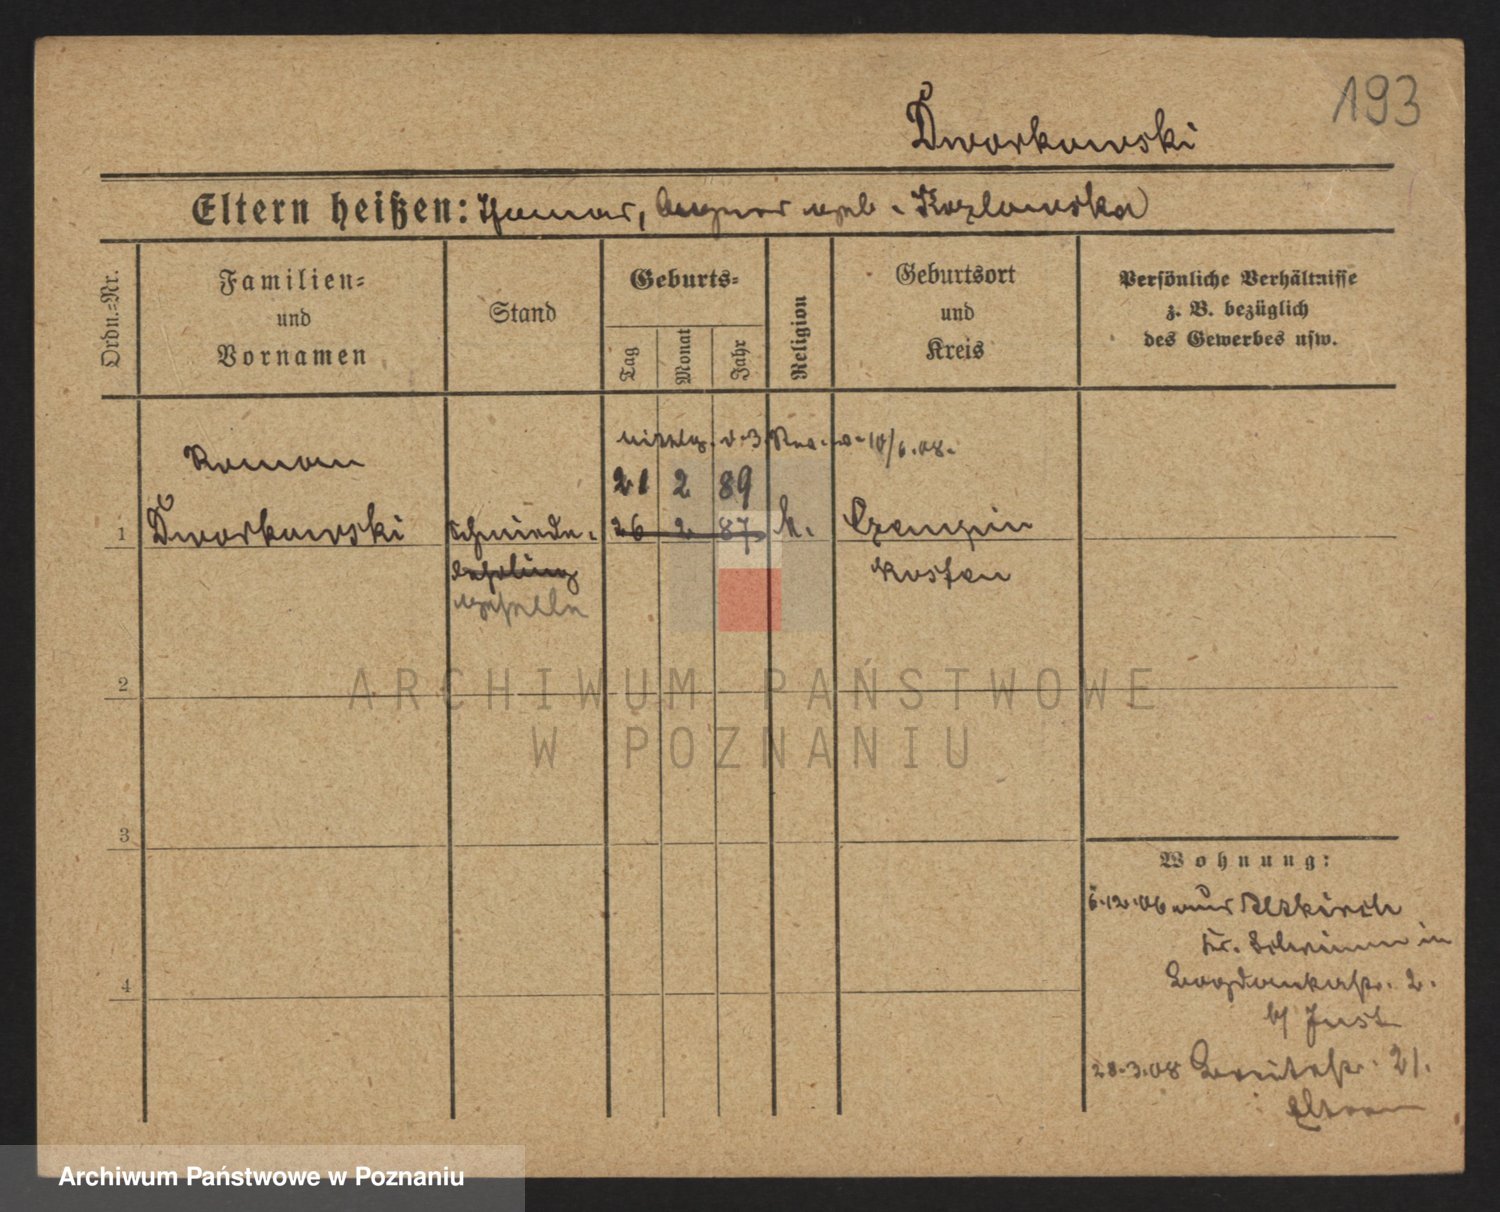 193
Dworkowski
Eltern heißen: Thomas, Agnes geb. Kozlowska
Ordn.=Nr.
Familien=
und
Vornamen
Stand
Geburts=
Tag
Monat
Jahr
Religion
Geburtsort
und
Kreis
Persönliche Verhältnisse
z. B. bezüglich
des Gewerbes usw.
10/6.08.
Roman
21 2 89
1 Dworkowski Schmiede- 26 2 87 k. Czempin
Lehrling Kosten
geselle
2
ARCHIWUM PAŃSTWOWE
W POZNANIU
3
Wohnung:
6.12.06 aus Altkirch
Kr. Schrimm in
Bogdankastr. 2.
b/ Just
4
28.3.08 Breitestr. 21.
Eltern
Archiwum Państwowe w Poznaniu